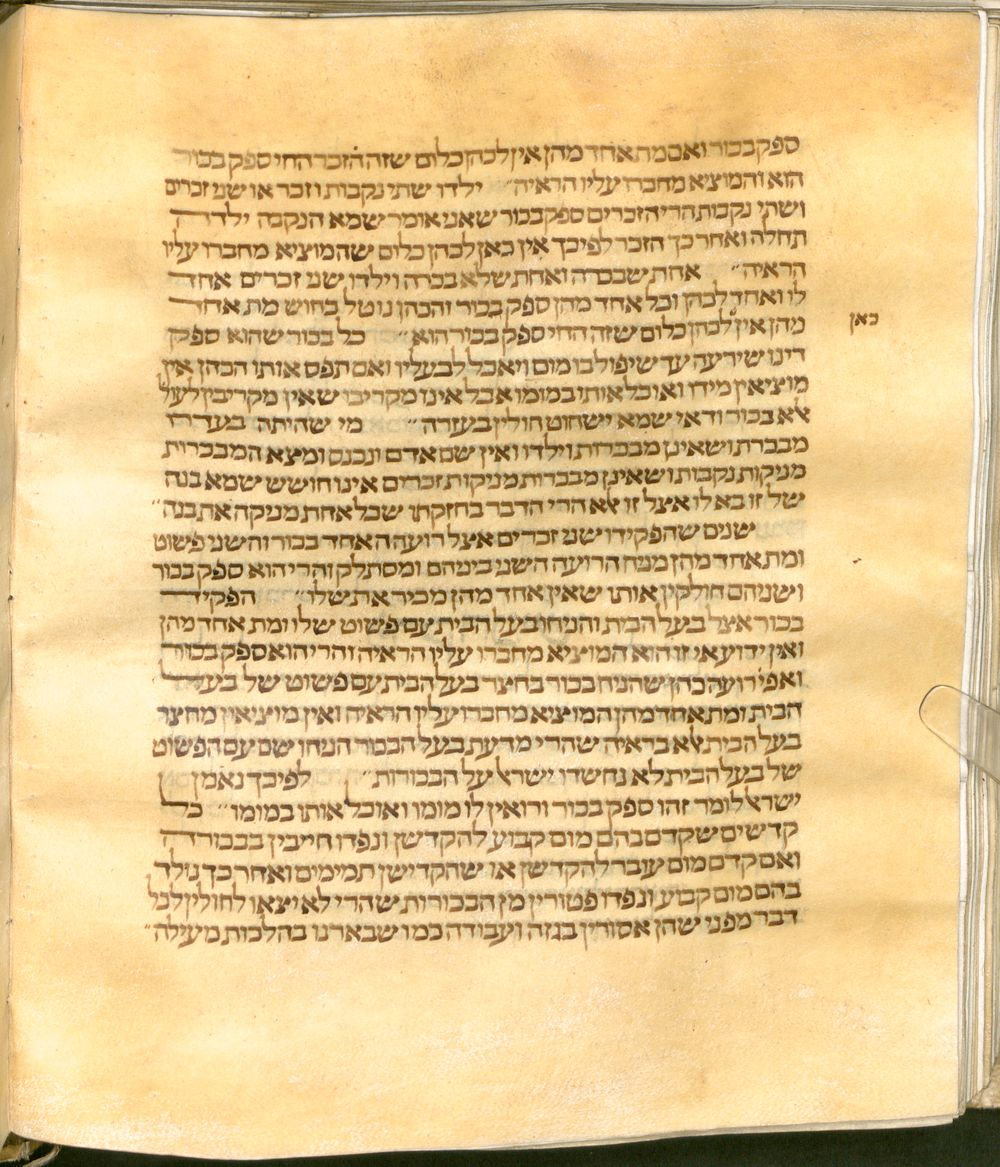 ספק בכור ואם מת אחד מהן אין לכהן כלום שזה הזכר החי ספק בכור
הוא והמוציא מחברו עליו הראיה״ ילדו שתי נקבות וזכר או שני זכרים
ושתי נקבות הרי הזכרים ספק בכור שאני אומר שמא הנקבה ילדה
תחלה ואחר כך הזכר לפיכך אין כאן לכהן כלום שהמוציא מחברו עליו
הראיה״ אחת שבכרה ואחת שלא בכרה וילדו שני זכרים אחד
לו ואחד לכהן וכל אחד מהן ספק בכור והכהן נוטל בחוש מת אחד
מהן אין לכהן כלום שזה החי ספק בכור הוא״ כל בכור שהוא ספק
כאן
דינו שירעה עד שיפול בו מום ויאכל לבעליו ואם תפס אותו הכהן אין
מוציאין מידו ואוכל אותו במומו אבל אינו מקריבו שאין מקריבין לעול׳
אלא בכור ודאי שמא ישחוט חולין בעזרה״ מי שהיתה בעדרו
מבכרת ושאינן מבכרות וילדו ואין שם אדם ונכנס ומצא המבכרות
מניקות נקבות ושאינן מבכרות מניקות זכרים אינו חושש שמא בנה
של זו בא לו אצל זו אלא הרי הדבר בחזקתו שכל אחת מניקה את בנה״
שנים שהפקידו שני זכרים אצל רועה האחד בכור והשני פשוט
ומת אחד מהן מניח הרועה השני ביניהם ומסתלק והרי הוא ספק בכור
ושניהם חולקין אותו שאין אחד מהן מכיר את שלו״ הפקיד
בכור אצל בעל הבית והניחו בעל הבית עם פשוט שלו ומת אחד מהן
ואין ידוע אי זו הוא המוציא מחברו עליו הראיה והרי הוא ספק בכור
ואפי׳ רועה כהן שהניח בכור בחצר בעל הבית עם פשוט של בעל
הבית ומת אחד מהן המוציא מחברו עליו הראיה ואין מוציאין מחצר
בעל הבית אלא בראיה שהרי מדעת בעל הבכור הניחו שם עם הפשוט
של בעל הבית לא נחשדו ישראל על הבכורות״ לפיכך נאמן
ישראל לומר זהו ספק בכור ורואין לו מומו ואוכל אותו במומו״ כל
קדשים שקדם בהם מום קבוע להקדשן ונפדו חייבין בבכורה
ואם קדם מום עובר להקדשן או שהקדישן תמימים ואחר כך נולד
בהם מום קבוע ונפדו פטורין מן הבכורות שהרי לא יצאו לחולין לכל
דבר מפני שהן אסורין בגזה ועבודה כמו שבארנו בהלכות מעילה״